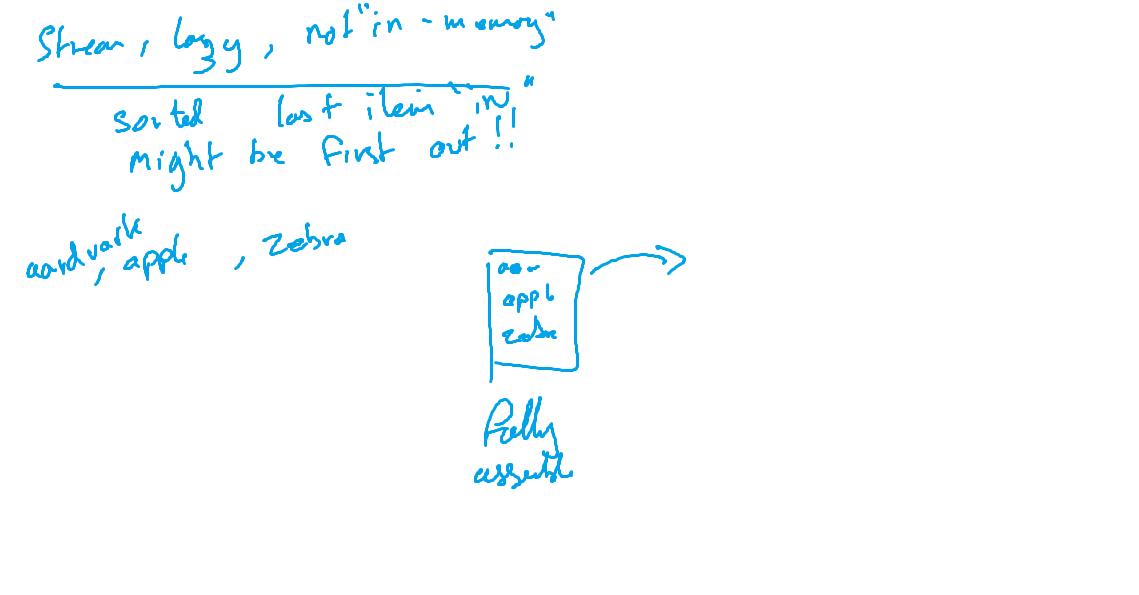 Stream, lazy, not "in-memory"
sorted last item "in"
might be first out!!
aardvark, apple, zebra
aar
appl
zebra
Fully